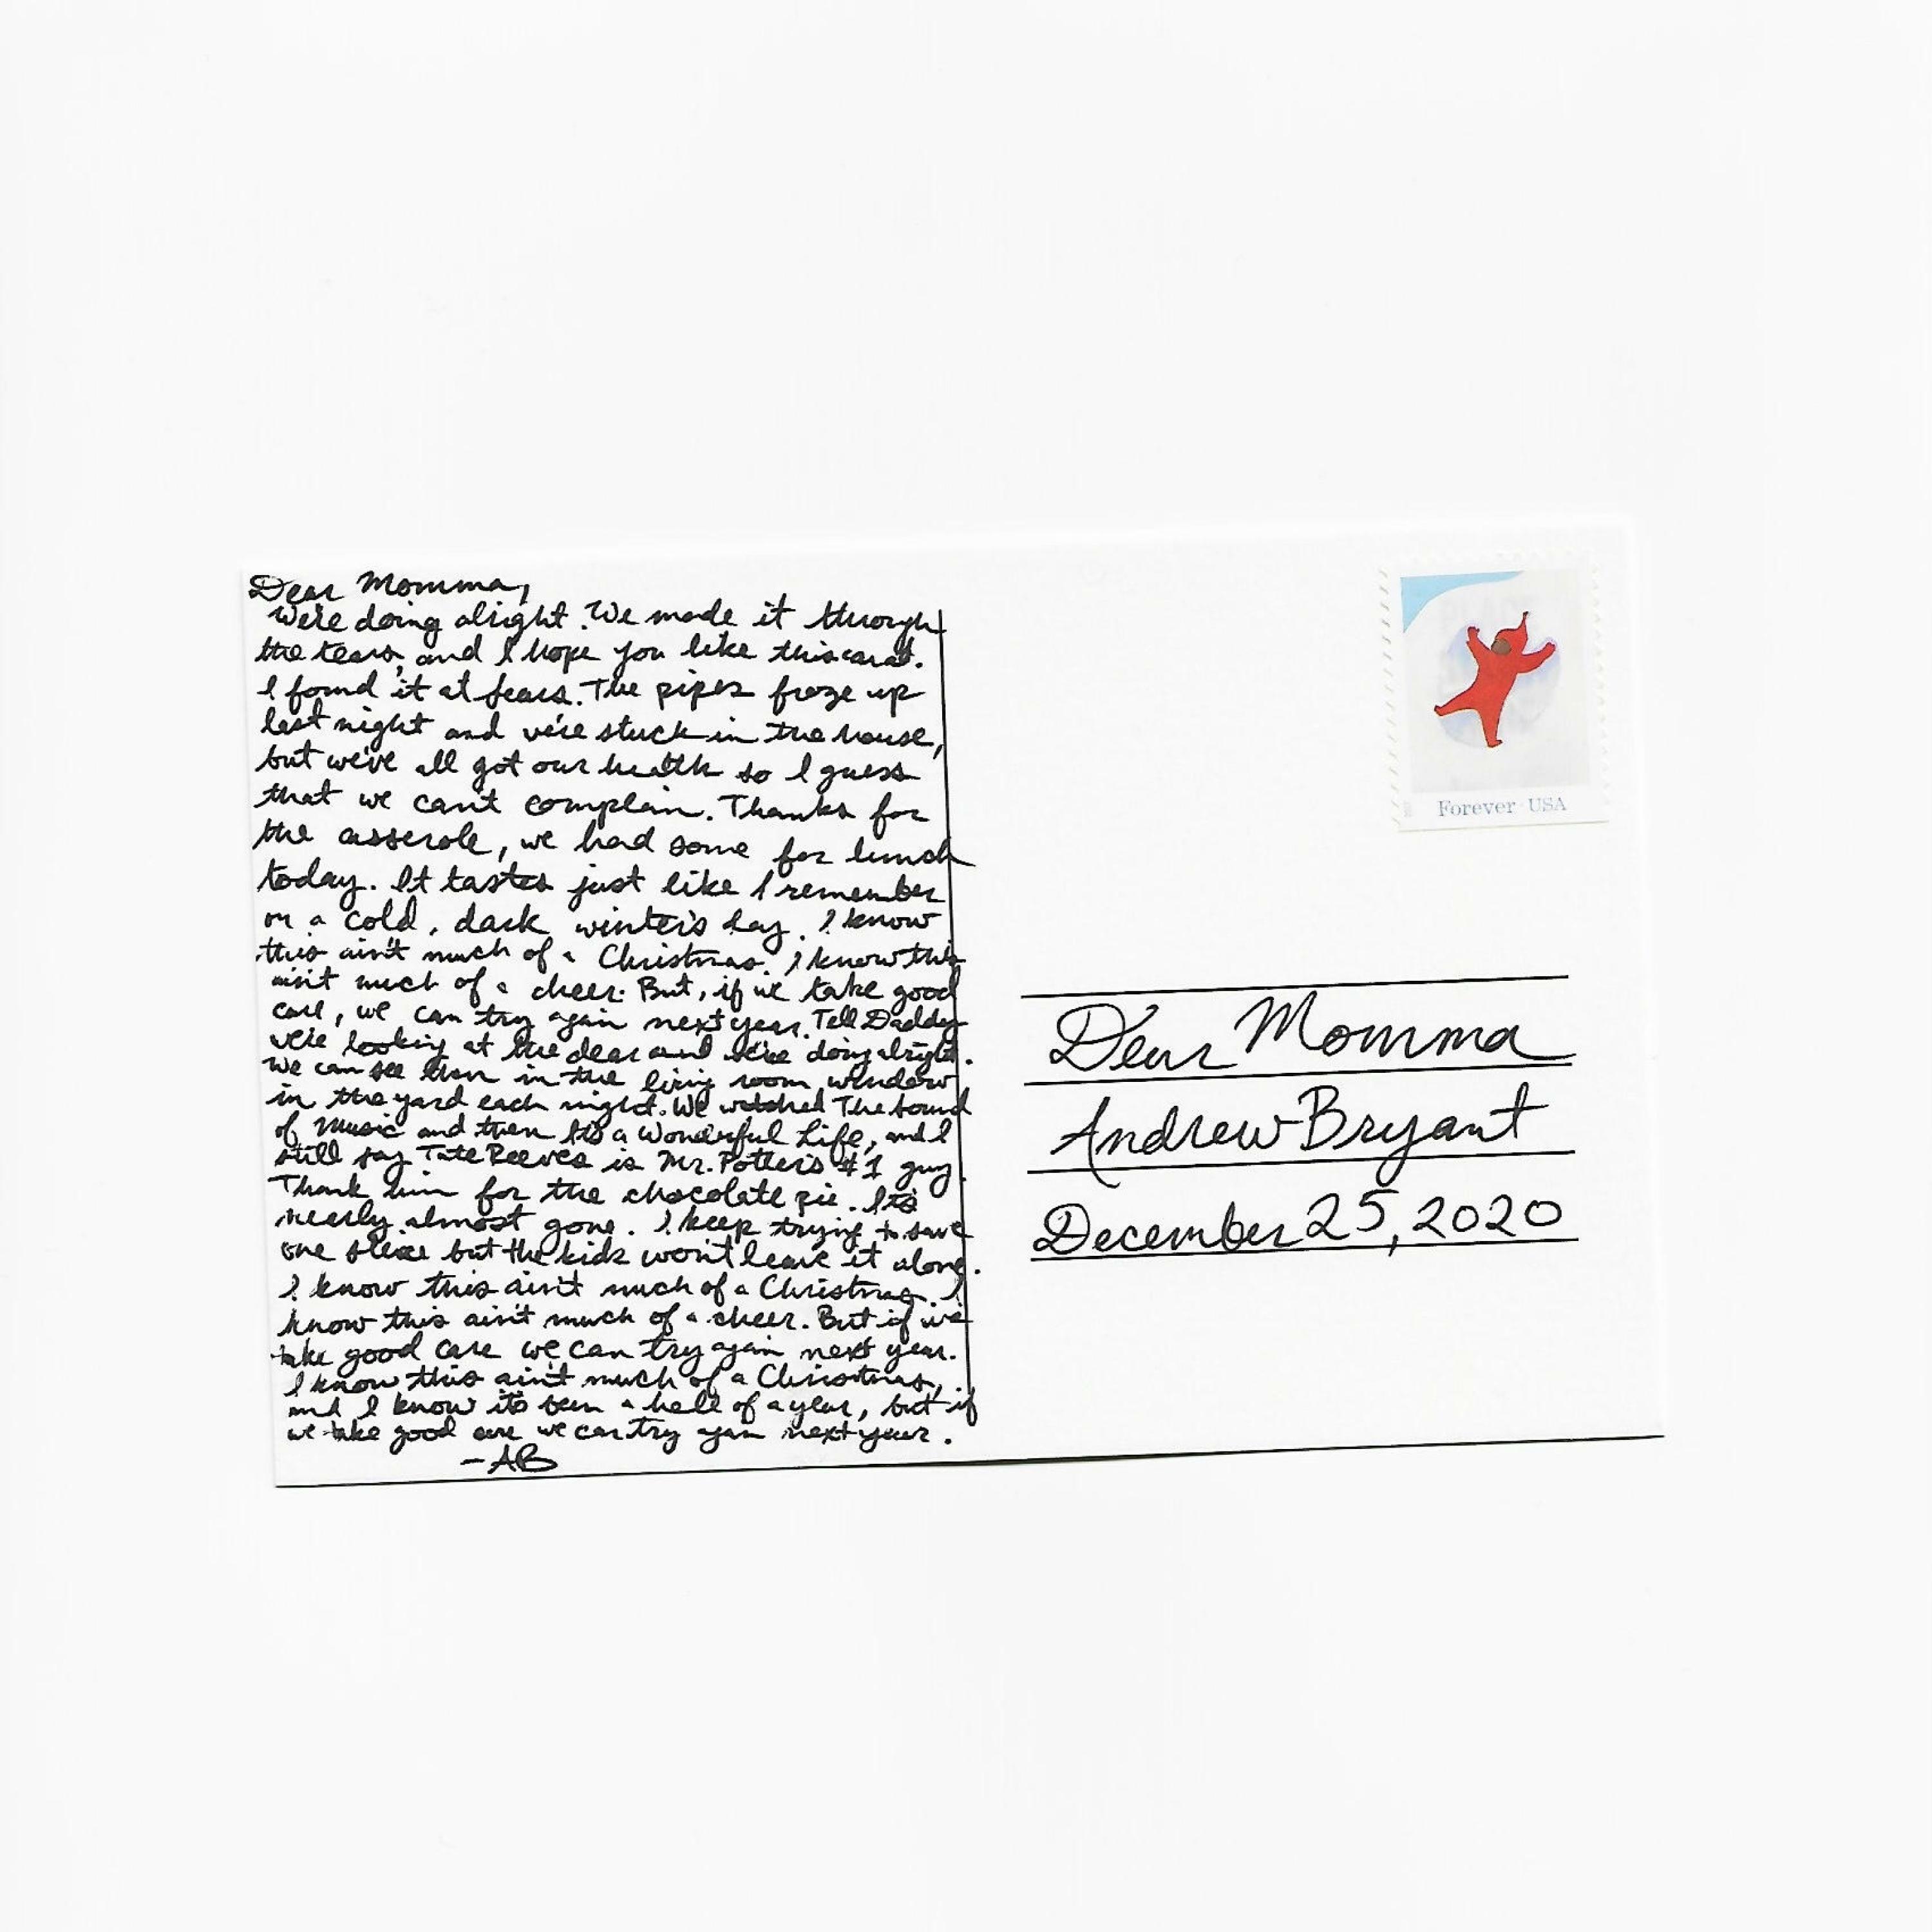 Dear Momma,
We're doing alright. We made it through
the tears, and I hope you like this card.
I found it at Sears. The pipes froze up
last night and we're stuck in the house,
but we've all got our health so I guess
that we can't complain. Thanks for
the casserole, we had some for lunch
today. It tastes just like I remember
on a cold, dark winter's day. I know
this ain't much of a Christmas. I know this
ain't much of a cheer. But, if we take good
care, we can try again next year. Tell Daddy
we're looking at the deer and we're doing alright.
We can see them in the living room window
in the yard each night. We watched The Sound
of Music and then It's a Wonderful Life, and I
still say Tate Reeves is Mr. Potter's #1 guy.
Thank him for the chocolate pie. It's
nearly almost gone. I keep trying to save
one slice but the kids won't leave it alone.
I know this ain't much of a Christmas. I
know this ain't much of a cheer. But if we
take good care we can try again next year.
I know this ain't much of a Christmas,
and I know it's been a hell of a year, but if
we take good care we can try again next year.
-AB
Forever USA
Dear Momma
Andrew Bryant
December 25, 2020